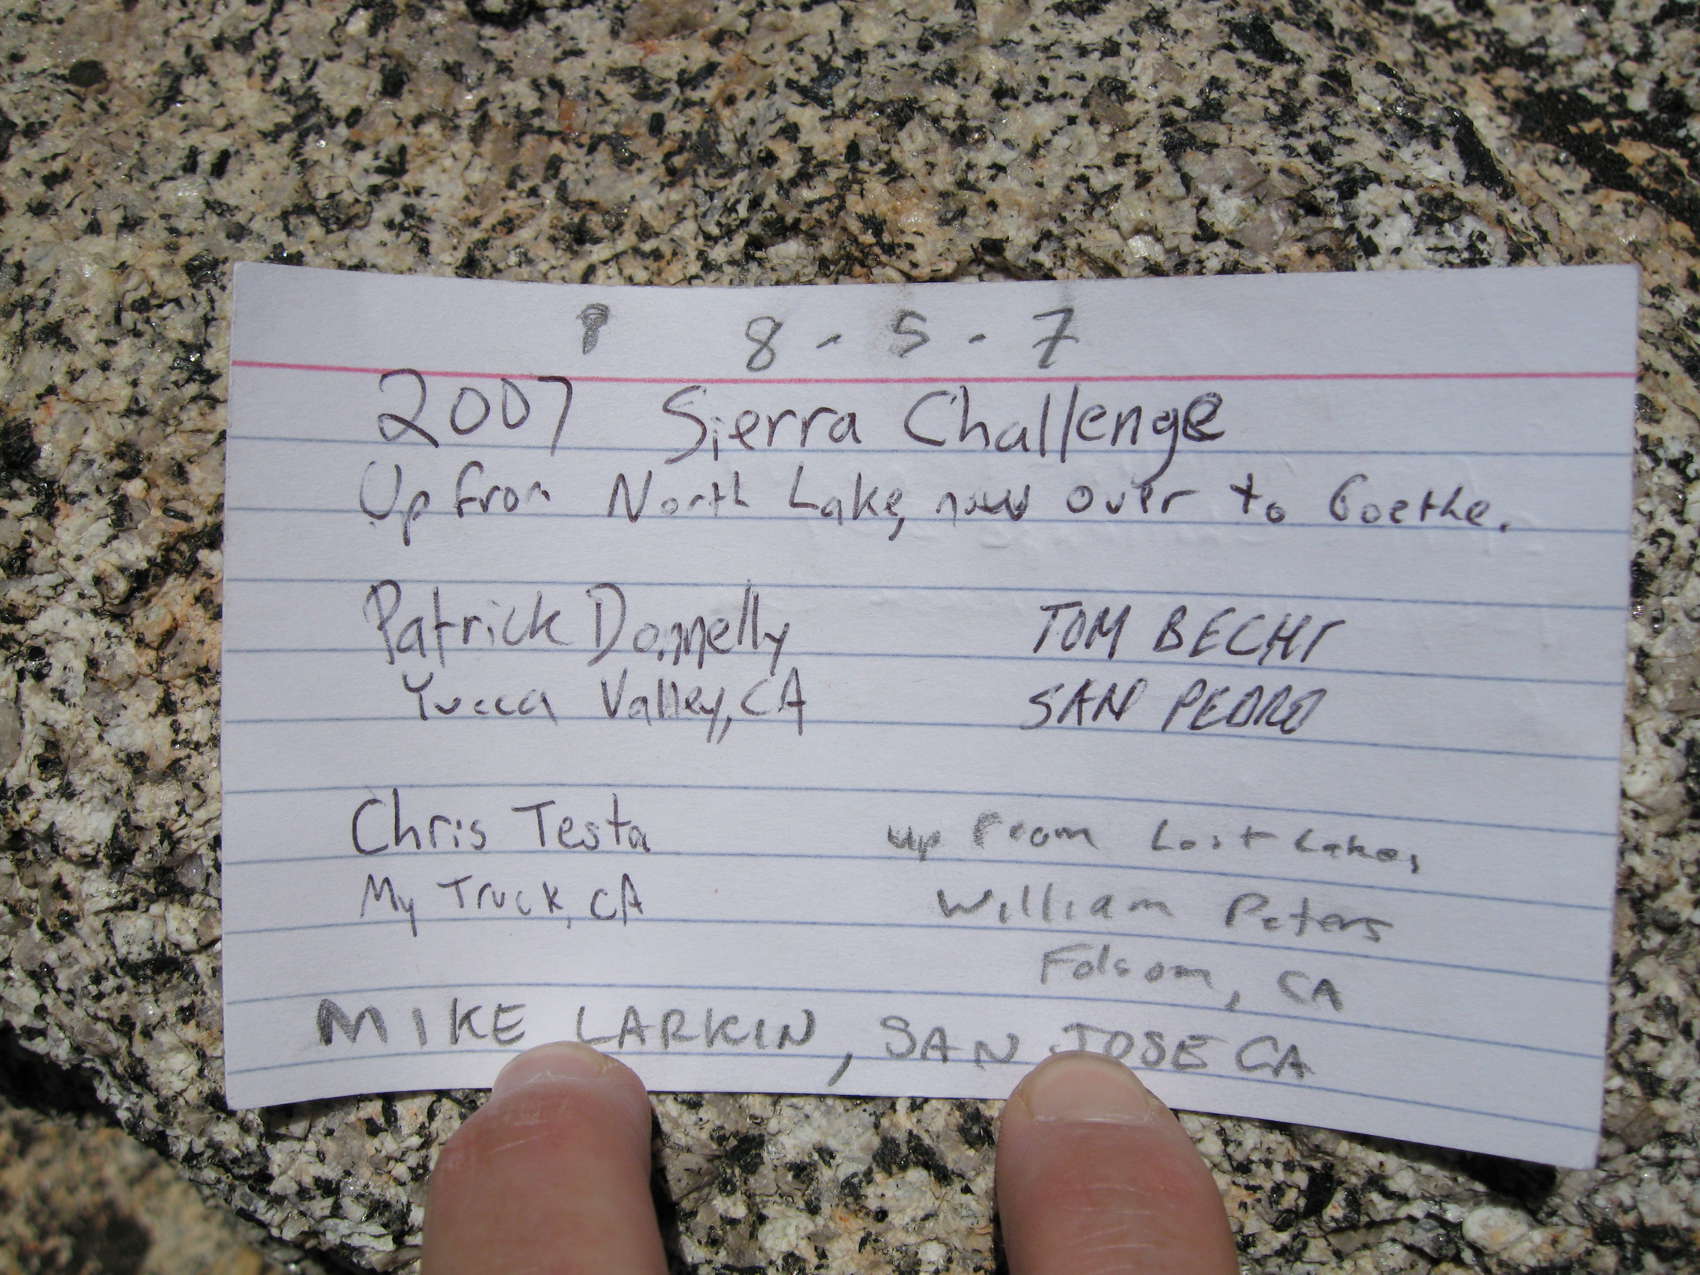 8 - 5 - 7
2007 Sierra Challenge
Up from North Lake, now over to Goethe.
Patrick Donnelly
Yucca Valley, CA
TOM BECHT
SAN PEDRO
Chris Testa
My Truck, CA
up from Lost Lakes,
William Peters
Folsom, CA
MIKE LARKIN, SAN JOSE CA